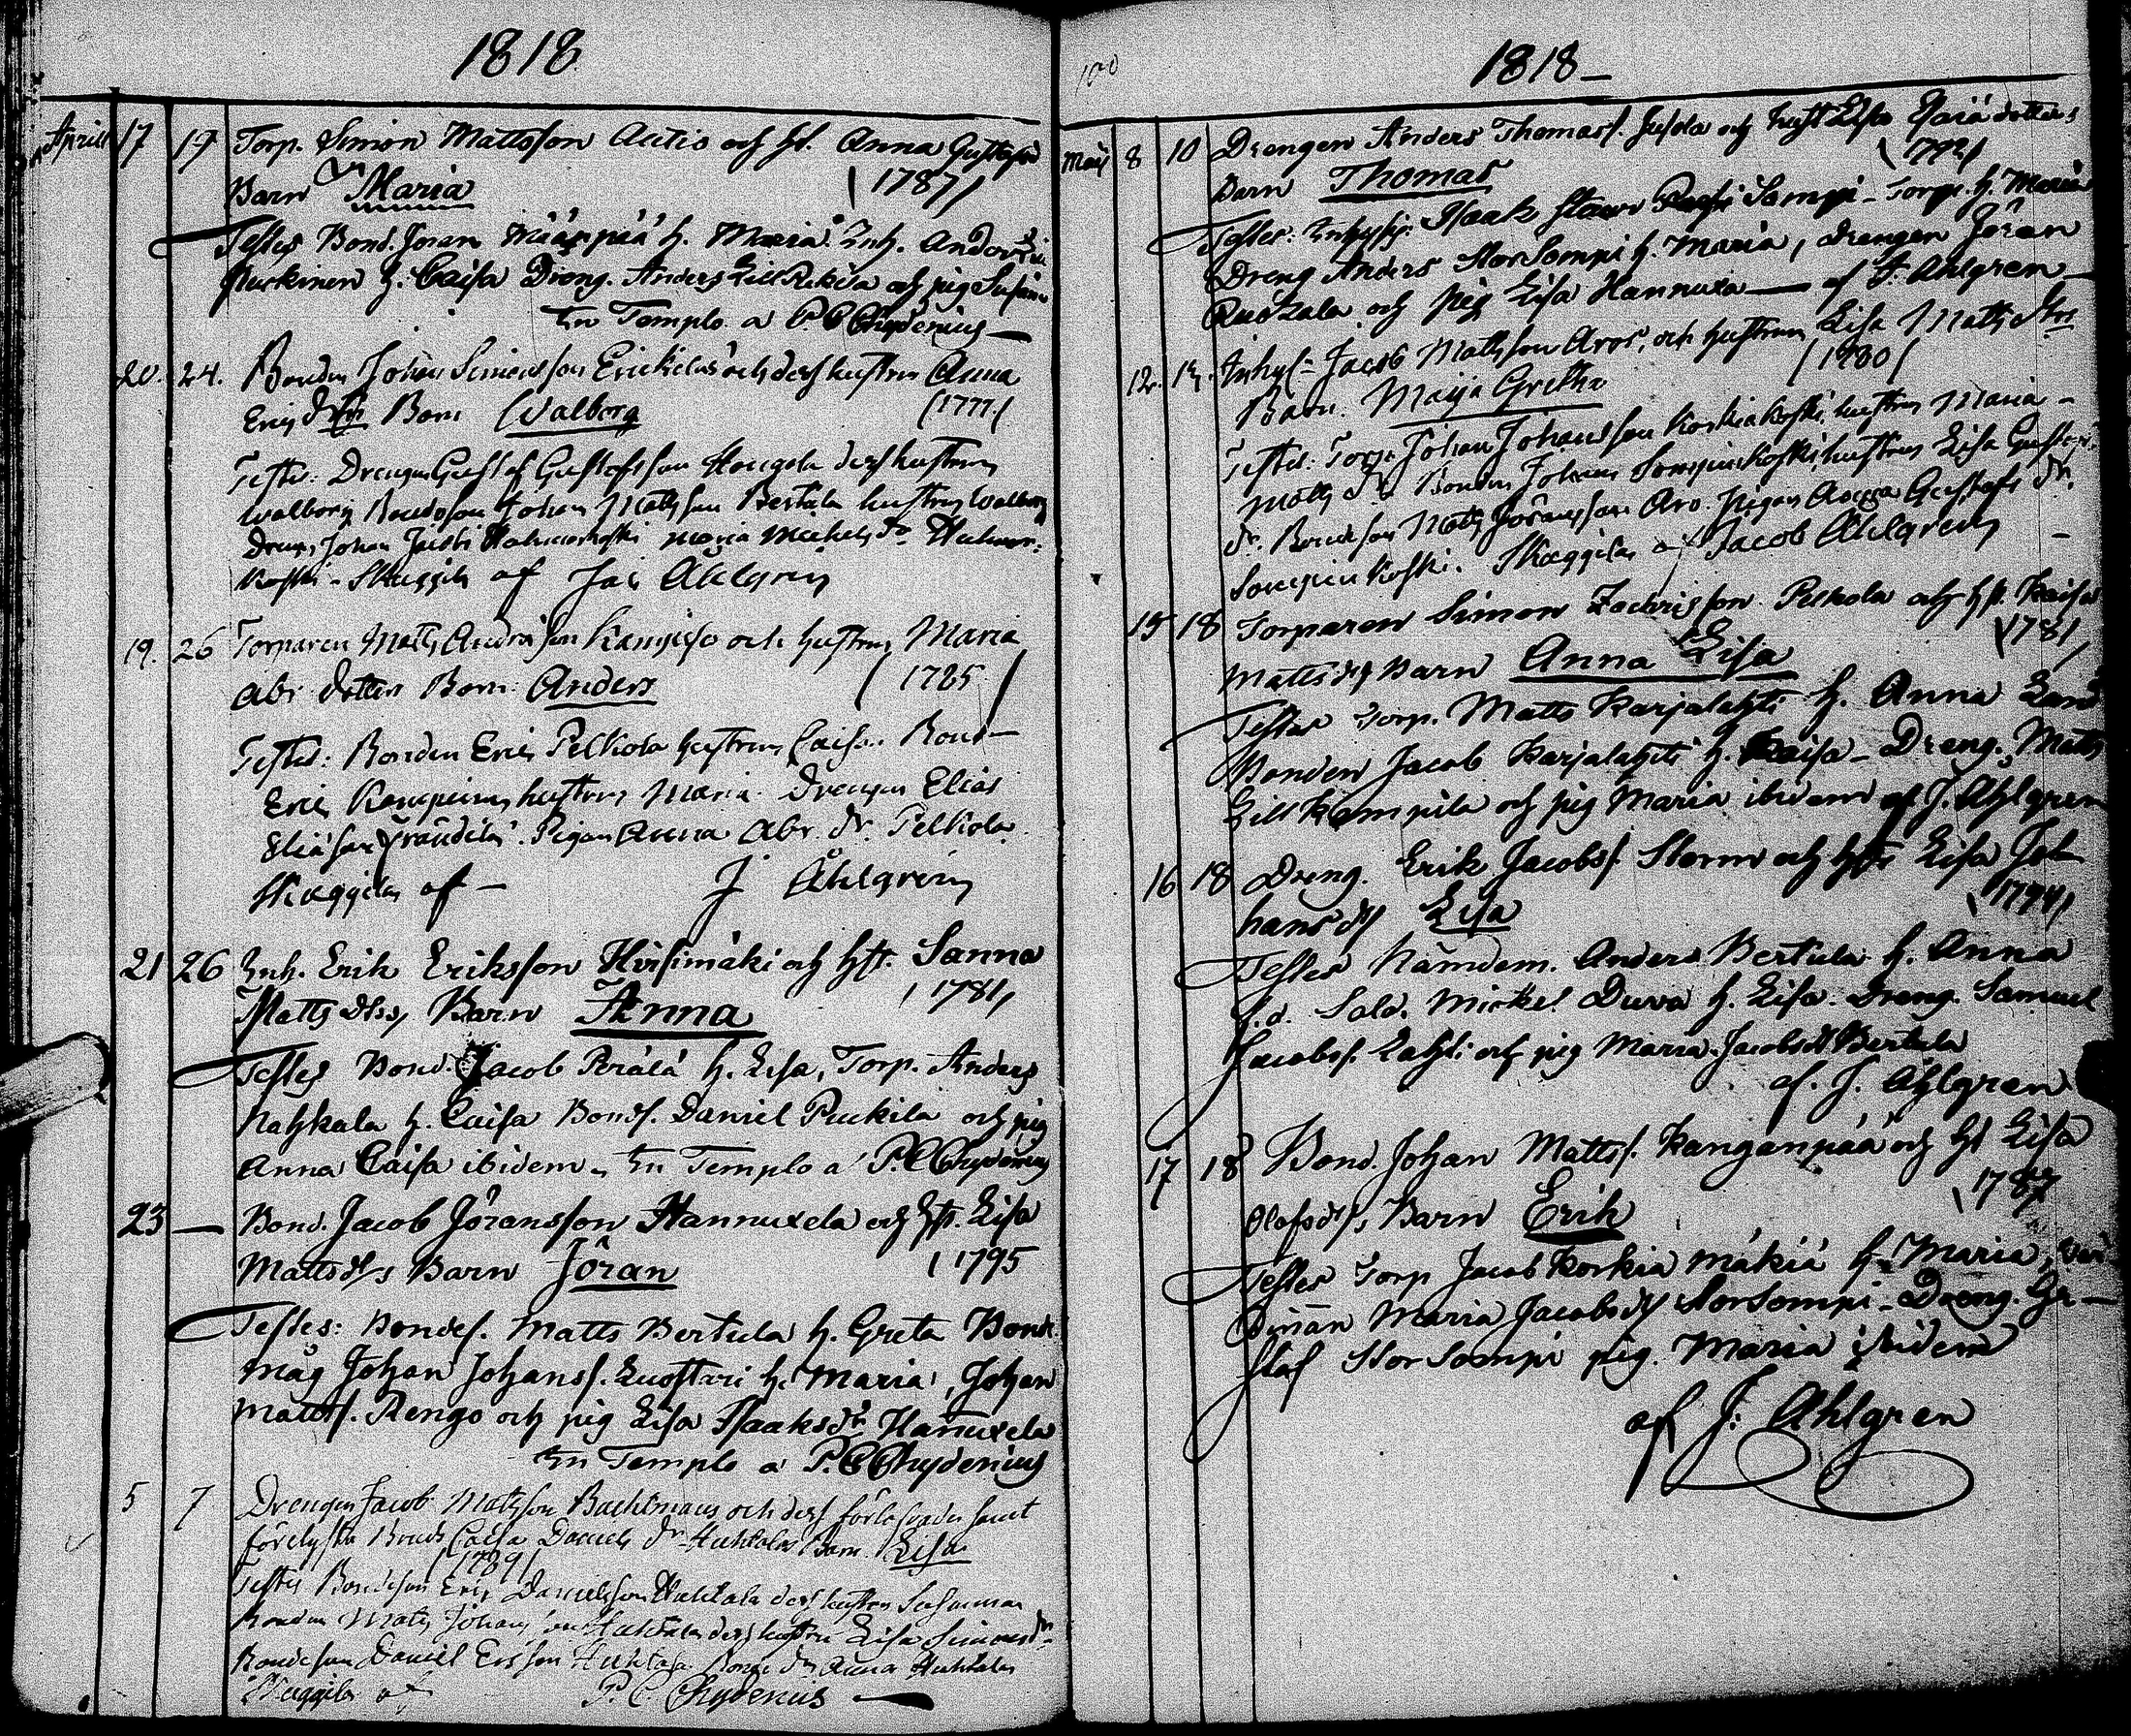 1818
April 17 19 Torp. Simon Mattsson Autio och h. Anna Gustafsd
Barn Maria (1787)
Testes Bond. Jöran Määspää h. Maria. Inh. Anders
Purkinen h. Caisa Dräng. Anders Lill Rekila och pig Susanna
In Templo a P C Chydenius
20. 24. Bonden Johan Simonsson Erickilä och dess hustru Anna
Erics dtr Barn Walborg (1777)
Testes: Drengen Gustaf Gustafsson Haugola dess hustru
Walborg Bondeson Johan Mattsson Bertula hustru Walborg
Dreng Johan Jacobs Maria Mickels dr
koski - Skaggila af Jac Ahlgren
19. 26 Torparen Matts Andersson Kampiso och hustru Maria
Abr. dotter Barn: Anders (1785)
Testes: Bonden Eric Pelkola hustru Caisa. Bond
Eric Kamppinen hustru Maria. Drengen Elias
Eliasson Frändilä. Pigan Anna Abr. dr. Pelkola.
Skaggila af — J Åhlgren
21 26 Inh. Erik Eriksson Hirsimäki och hst. Sanna
Matts dtr, Barn Anna (1781)
Testes Bond. Jacob Perälä h. Lisa, Torp. Anders
Nahkala h. Caisa Bonds. Daniel Puckila och pig
Anna Caisa ibidem. In Templo a P. C Chydenius
23 — Bond. Jacob Jöransson Hannuxela och hst. Lisa
Mattsdtr Barn Jöran (1795
Testes: Bondes. Matts Bertula h. Greta Bond.
måg Johan Johanss. Luostari h. Maria, Johan
Mattss. Rengo och pig Lisa Isaksdr Hanuxela
In Templo a P. C Chydenius
5 7 Drengen Jacob Mattsson Backman och dess förlofvade samt
förelysta Brud Caisa Daniels dr Huhtala Barn. Lisa
(1789)
Testes Bondeson Eric Danielsson Huhtala dess hustru Susanna
Bonden Matts Johansson Huhtala dess hustru Lisa Simonsdr
Bondeson Daniel Ersson Huhtala Bonde dr Anna Huhtala
Skaggila af P. C. Chydenius —
100
1818 —
Maij 8 10 Drengen Anders Thomass. Jusola och hust Lisa Esaiä dotter
Barn Thomas (1792)
Testes: Inhyss. Isaak Sompi - Torp. h. Maria
Dreng Anders StorSompi h. Maria, drengen Jöran
Ruotzala och pig Lisa Hannuxa — af J. Ahlgren —
12. Inhys- Jacob Mattsson Aros, och hustrun Lisa Matts dtr
Barn. Maija Gretha (1780)
Testes: Torp. Johan Johansson Korkiakoski, hustru Maria
Matts dr. Bonden Johan Sompinkoski, hustru Lisa Gustafs
dr. Bondeson Matts Jöransson Aro. Pigan Anna Gustafs dr.
Sompinkoski. Skaggila af Jacob Åhlgren
15 18 Torparen Simon Zachrisson Pelkola och hst. Kaisa
Matts dtr Barn Anna Lisa (1781)
Testes Torp. Matts Karjalahti h. Anna
Bonden Jacob Karjalahti h. Kaisa — Dreng. Matts
Lill Kempila och pig Maria ibidem af J. Ahlgren
16 18 Dreng. Erik Jacobss. Storm och hst Lisa Jo-
hansdtr Lisa (1794)
Testes Nämdem. Anders Bertula h. Anna
f.d. Sold. Mickel Duva h. Lisa. Dreng. Samuel
Jacobss. Lahti och pig Maria Jacobsdtr Bertula
af. J. Åhlgren
17 18 Bond. Johan Mattss. Kanganpää och hst Lisa
Olofsdtr, Barn Erik (1787
Testes Torp Jacob Korkiamäkiä h. Maria,
Maria Jacobsdtr StorSompi — Dreng. Gu-
staf StorSompi pig. Maria ibidem
af J: Ahlgren